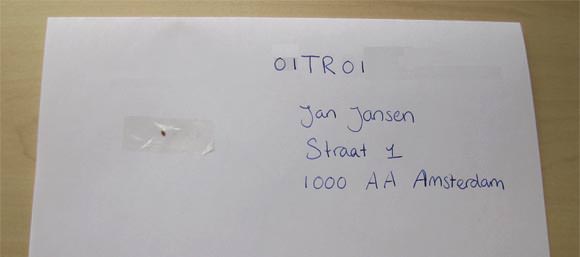 01TR01
Jan Jansen
Straat 1
1000 AA Amsterdam